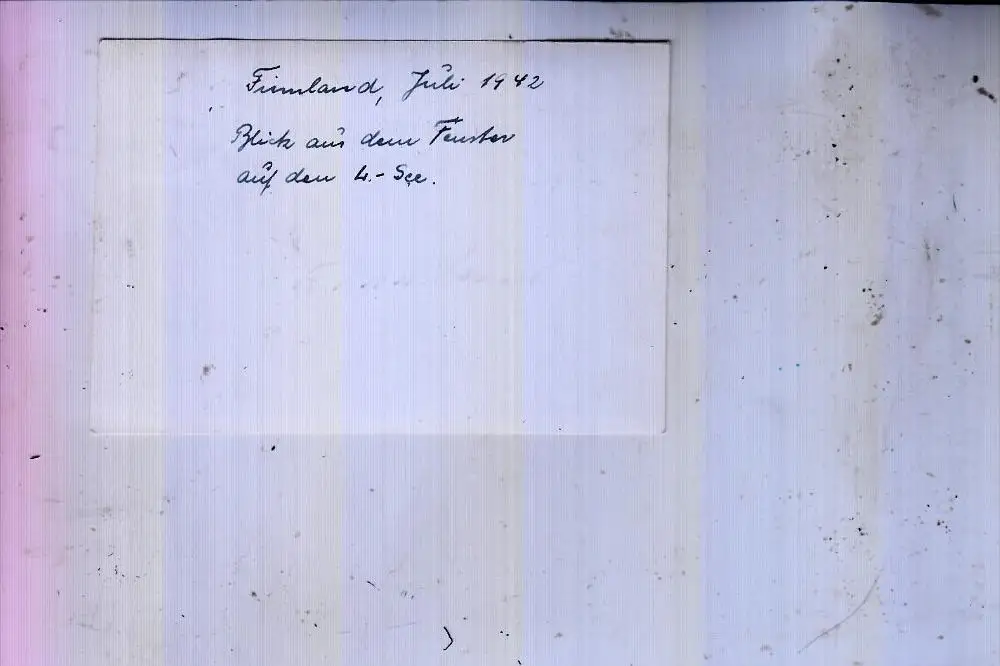 Finnland, Juli 1942
Blick aus dem Fenster
auf den L.-See.